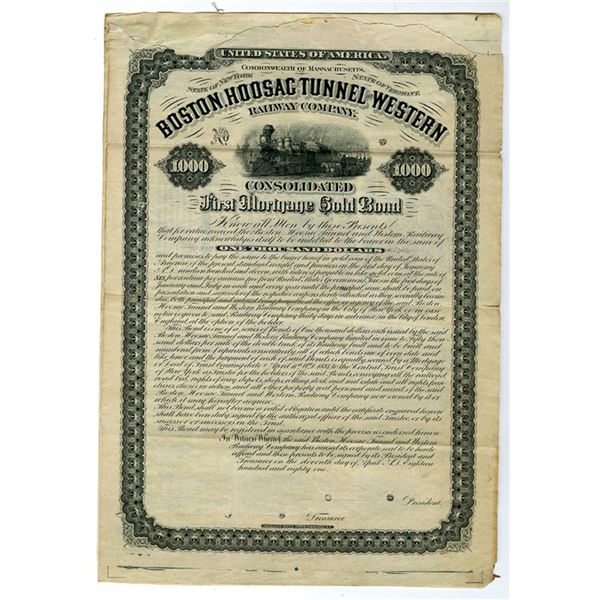 UNITED STATES OF AMERICA.
COMMONWEALTH OF MASSACHUSETTS.
STATE OF NEW YORK STATE OF VERMONT.
BOSTON, HOOSAC TUNNEL WESTERN
RAILWAY COMPANY.
No.
1000 1000
CONSOLIDATED
First Mortgage Gold Bond
Know all Men by these Presents
that for value received the Boston, Hoosac Tunnel and Western Railway
Company acknowledges itself to be indebted to the bearer in the sum of
ONE THOUSAND DOLLARS
and promises to pay the same to the bearer hereof in gold coin of the United States of
America of the present standard weight and fineness on the first day of January
A.D. nineteen hundred and eleven, with interest payable in like gold coin at the rate of
six per centum per annum free from United States Government Tax on the first days of
January and July in each and every year until the principal sum shall be paid on
presentation and surrender of the respective coupons hereto attached as they severally become
due, both principal and interest being payable at the office or agency of the said Boston
Hoosac Tunnel and Western Railway Company in the City of New York or in case
notice is given to said Railway Company thirty days in advance in the City of London,
England, at the option of the holder.
This Bond is one of a series of Bonds of One thousand dollars each issued by the said
Boston, Hoosac Tunnel and Western Railway Company limited in issue to Fifty thou-
sand dollars per mile of the double track of its Railway built and to be built and
numbered from 1 upwards consecutively, all of which bonds are of even date and
like tenor and the payment of each of said Bonds is equally secured by a Mortgage
or Deed of Trust bearing date April 11th 1881 to the Central Trust Company
of New York as Trustee for the holders of the said Bonds, conveying all the railroad
road bed, rights of way, depots, shops, rolling stock and real estate and all rights fran-
chises choses in action, and all other property real, personal and mixed of the said
Boston, Hoosac Tunnel and Western Railway Company now owned by it or
which it may hereafter acquire.
This Bond shall not become a valid obligation until the certificate engraved hereon
shall have been duly signed by the authorized officer of the said Trustee or by its
successor or successors in the Trust.
This Bond may be registered in accordance with the provisions endorsed hereon
In Witness Whereof, the said Boston, Hoosac Tunnel and Western
Railway Company has caused its corporate seal to be hereto
affixed and these presents to be signed by its President and
Treasurer on the eleventh day of April A.D. eighteen
hundred and eighty one.
President.
Treasurer